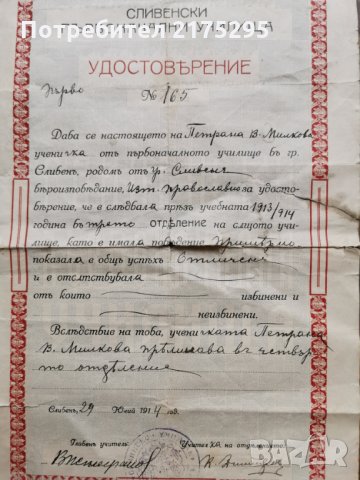 Потребител 2175295
СЛИВЕНСКИ
УЧИЛИЩА
УДОСТОВѢРЕНИЕ
Първо
№ 165
Дава се настоящето на Петрана В. Милкова
ученичка отъ първоначалното училище въ гр.
Сливенъ, родомъ отъ гр. Сливенъ
вѣроизповѣдание, Изт. православно за удосто-
вѣрение, че е слѣдвала прѣзъ учебната 1913/914
година въ трето отдѣление на сѫщото учи-
лище, като е имала поведение примѣрно
показала е общъ успѣхъ Отличенъ
и е отсѫтствувала
отъ които извинени и
неизвинени.
Вслѣдствие на това, ученичката Петрана
В. Милкова прѣминава въ четвър-
то отдѣление
Сливенъ, 29 Юний 1914 год.
Главенъ учитель:
Учителка на отдѣлението:
bazar